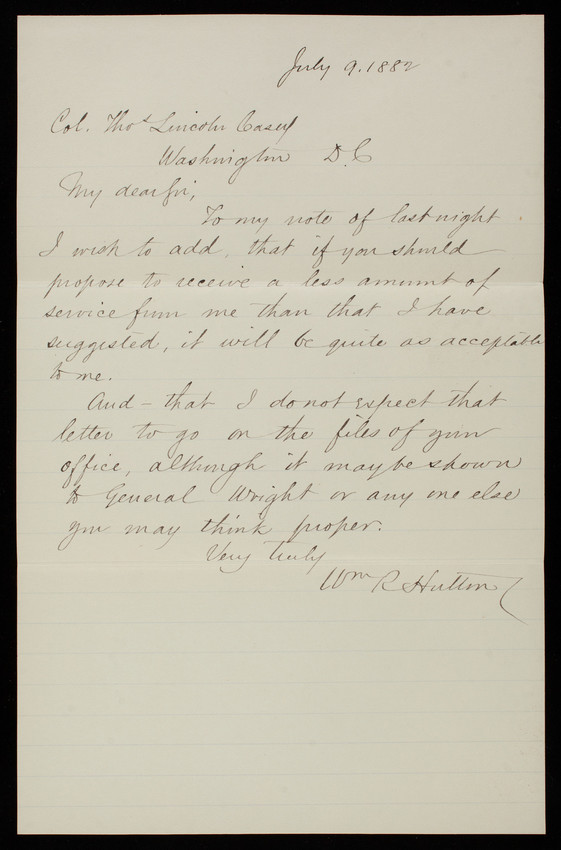 July 9. 1882
Col. Thos Lincoln Casey
Washington D.C
My dear Sir;
To my note of last night
I wish to add, that if you should
propose to receive a less amount of
service from me than that I have
suggested, it will be quite as acceptable
to me.
And - that I do not expect that
letter to go on the files of your
office, although it may be shown
to General Wright or any one else
you may think proper.
Very truly
Wm R Hutton